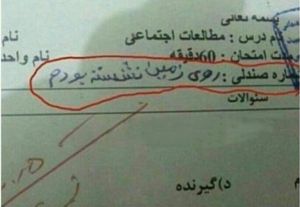 بسمه تعالی
نام درس : مطالعات اجتماعی
مدت امتحان : 60دقیقه
نام واحد
شماره صندلی : روی زمین نشسته بودم
سئوالات
د)گیرنده